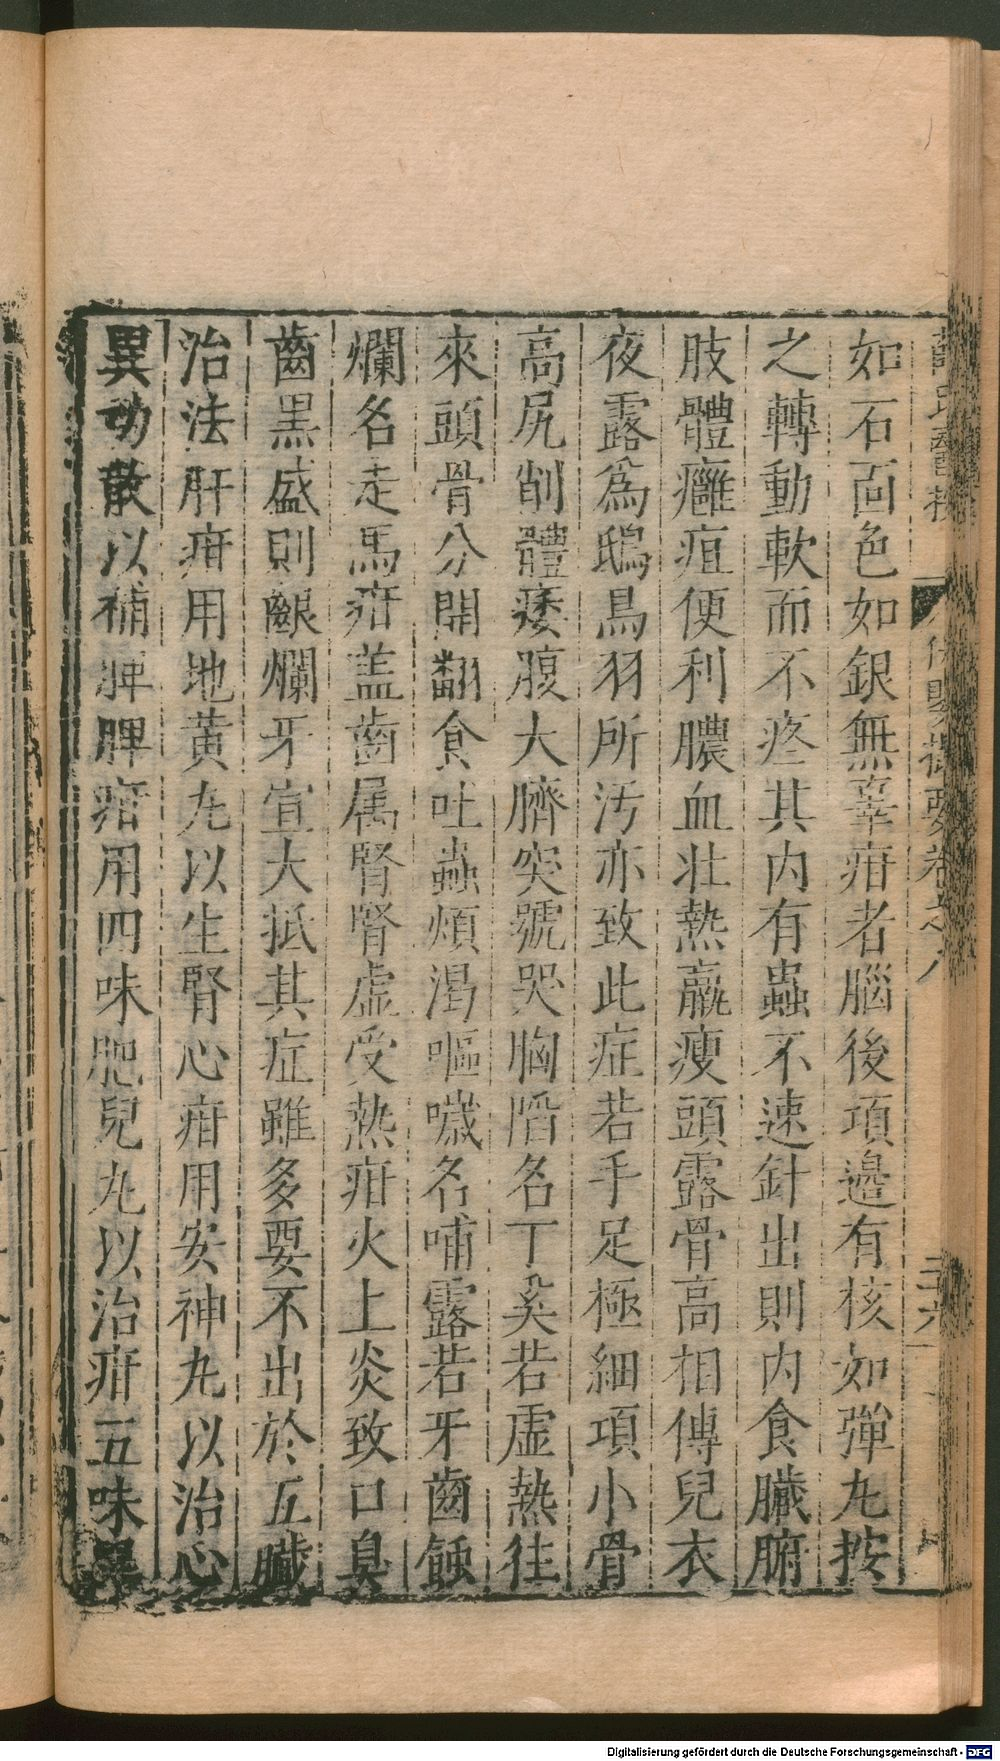 如石面色如銀無辜疳者腦後項邊有核如彈丸按
之轉動軟而不疼其内有蟲不速針出則内食臟腑
肢體癰疽便利膿血壯熱羸瘦頭露骨高相傳兒衣
夜露爲鴟鳥羽所污亦致此症若手足極細項小骨
高尻削體痿腹大臍突號哭胸陷名丁奚若虛熱往
來頭骨分開翻食吐蟲煩渴嘔噦名哺露若牙齒蝕
爛名走馬疳盖齒属腎腎虛受熱疳火上炎致口臭
齒黒盛則齦爛牙宣大抵其症雖多要不出於五臟
治法肝疳用地黄丸以生腎心疳用安神丸以治心
異功散以補脾脾疳用四味肥兒丸以治疳五味異
保嬰撮要卷之八
Digitalisierung gefördert durch die Deutsche Forschungsgemeinschaft - DFG